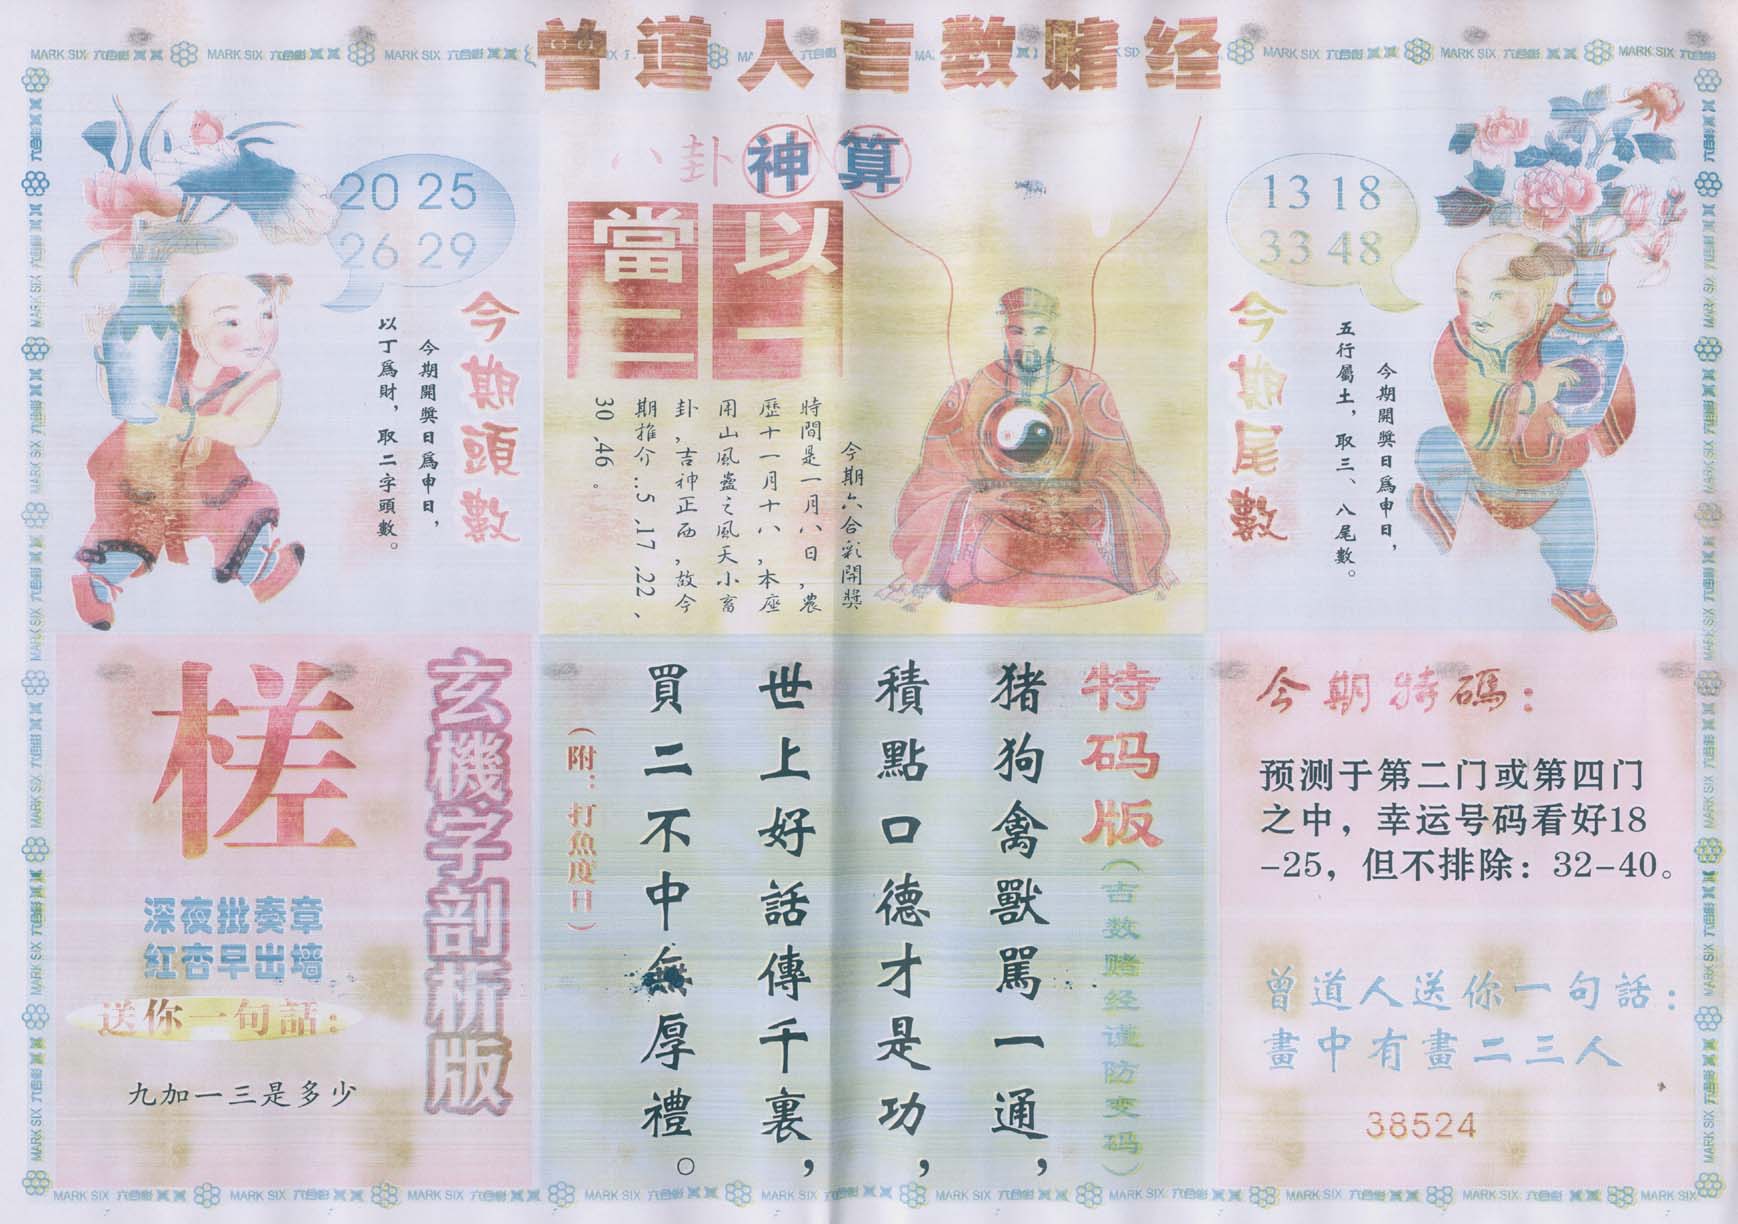 曾道人吉数赌经
八卦神算
以一
當二
今期六合彩開獎
時間是一月八日，農
歷十一月十八，本座
用山風蠱之風天小畜
卦，吉神正西，故今
期推介..5 .17 .22、
30 .46 。
20 25
26 29
今期頭數
今期開獎日爲申日，
以丁爲財，取二字頭數。
13 18
33 48
今期尾數
今期開獎日爲申日，
五行屬土，取三、八尾數。
玄機字剖析版
槎
深夜批奏章
紅杏早出墻
送你一句話：
九加一三是多少
特码版
（吉数赌经谨防变码）
猪狗禽獸罵一通，
積點口德才是功，
世上好話傳千裏，
買二不中無厚禮。
（附：打魚度日）
今期特碼：
预测于第二门或第四门
之中，幸运号码看好18
-25，但不排除：32-40。
曾道人送你一句話：
畫中有畫二三人
38524
MARK SIX 六合彩